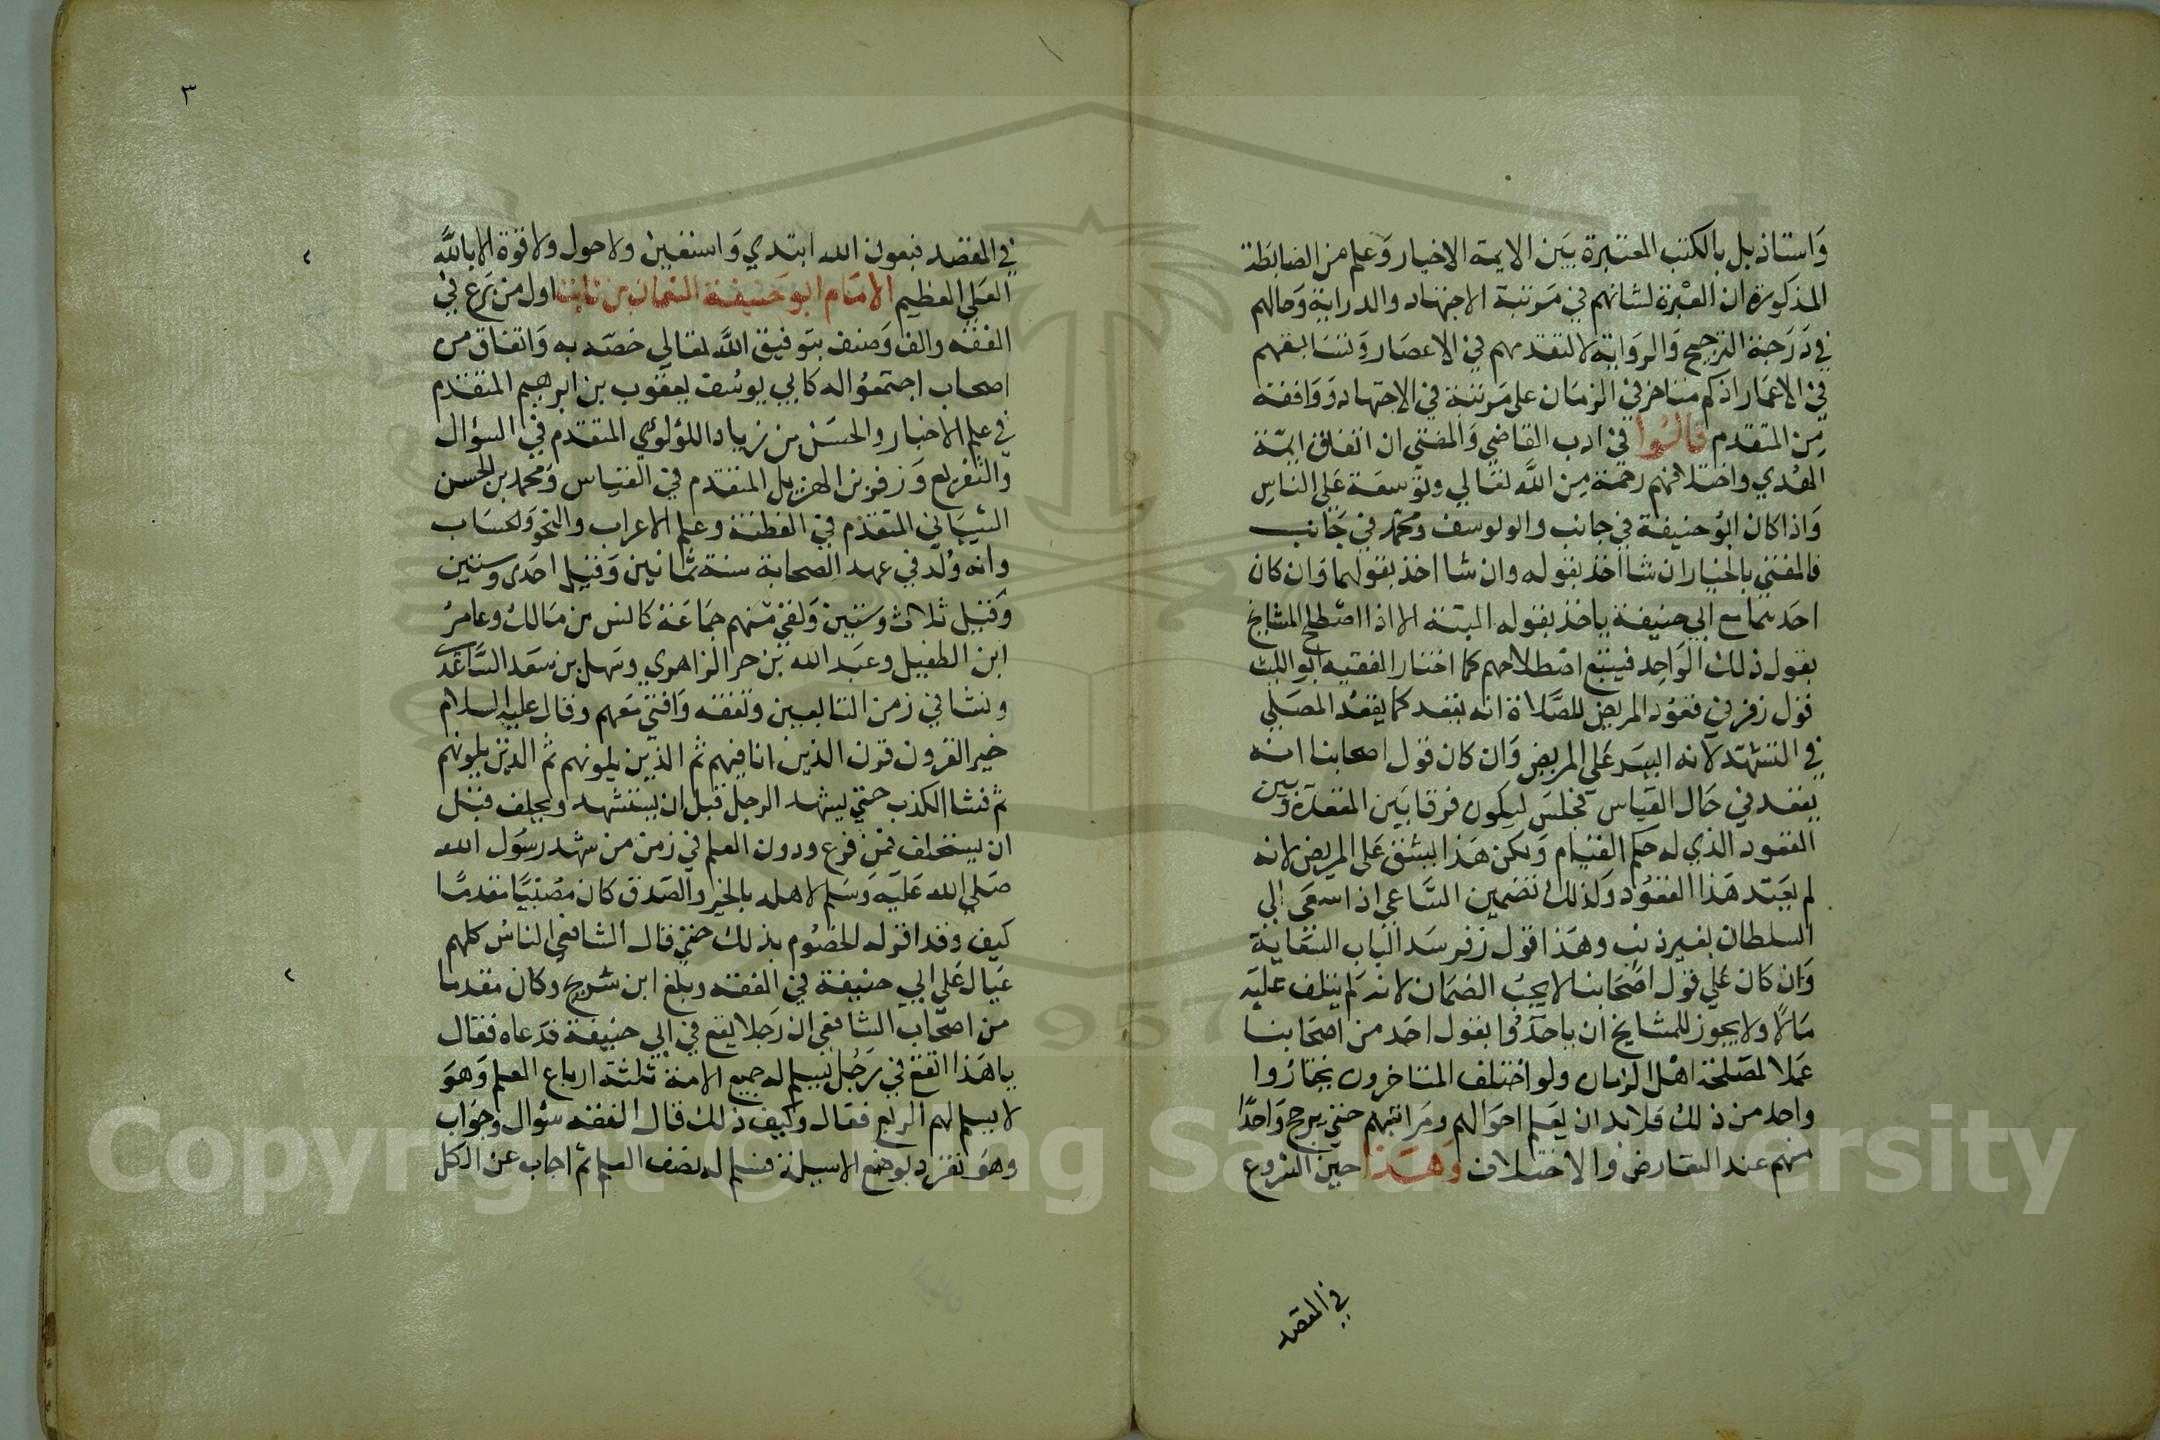 وَاستاذ بل بالكتب المعتبرة بَين الايمة الاخيار وَعلم من الضابطة
المذكورة ان العبْرة لشانهم في مَرتبة الاجتهاد والدراية وَحالهم
في دَرَجة الترجيح وَالروَاية لا لتقدمهم في الاعصَار وَتسَابقهم
في الاعمَار اذ كم متاخر في الزمَان على مَرتبة في الاجتهاد وَوَافقه
مِن المتقدم قالُوا في ادب القاضي وَالمفتي ان اتفاق ايمّة
الهُدي واختلافهم رحمَة مِن اللَّه تعَالي وتَوسعَة عَلى الناس
وَاذا كان ابُو حنيفة في جانب وابو يوسف ومحمّد في جَانب
فالمفتي بالخيار ان شا اخذ بقوله وان شا اخذ بقولهما وَان كان
احَدهما مع ابي حنيفة ياخذ بقوله البتة الا اذا اصْطلح المشايخ
بقول ذلك الوَاحِد فيتبع اصْطلاحهم كما اختار الفقيه ابو الليث
قول زفر في قعوُد المريض للصَّلاة انه يقعد كما يقعُد المصَلي
في التشهّد لانه ايسَر عَلي المريض وَان كان قول اصحابنا انه
يقعد في حَال القيَاس فجلسَ ليكون فرقا بَين القعدَة وَبين
القعود الذي له حكم القيَام وَلكن هَذا يشق عَلى المريض لانه
لم يعتد هَذا القعوُد وَلذلك تضمين السَّاعي اذا سعَى الي
السلطان بغير ذنب وهَذا قول زفر سَد الباب السّعَاية
وَان كان عَلي قول اصَحَابنا لا يجبُ الضمَان لانه لم يتلف عليَه
مَالا ولا يجوز للمشايخ ان ياخذُوا بقول احَد من اصحَابنا
عَملا لمصَلحة اهْل الزمان ولو اختلف المتاخرون يختارُوا
واحد من ذلك فلا بد ان يعَلم احوَالهم ومَراتبهم حتي يرجح وَاحدًا
منهم عند التعَارض والاختلاف وَهَذا حين الشروع
في المقصد
٣
في المقصد فبعون الله ابتدي وَاستعَين ولا حول ولا قوة الا باللَّه
العَلي العظيم الامَام ابو حَنيفة النعمان بن ثابت اول من بَرع في
الفقه والف وَصنف بتوفيق اللَّه تعَالي خصّه به وَاتفاق من
اصحاب اجتمعوُا له كابي يوسُف يعقوب بن ابرهيم المتقدم
في علم الاخبار والحسَن بن زياد اللؤلؤي المتقدم في السؤال
والتفريع وَزفر بن الهزيل المتقدم في القياس وَمحمد بن الحسن
الشيبَاني المتقدم في الفطنة وعلم الاعراب والنحو وَالحسَاب
وانه وُلد في عهد الصحابة سنة ثمانين وَقيل احَدى وستين
وَقيل ثلاث وستين وَلقي منهم جمَاعَة كانس بن مَالك وعامر
ابن الطفيل وعبَد الله بن حر الزاهوي وسَهل بن سَعَد السَّاعَدي
ونشا في زمن التابعين وتفقه وَافتى معَهم وقال عليه السلام
خير القرون قرن الذين انا فيهم ثم الذين يلونهم ثم الذين يلونهم
ثم فشا الكذب حتي يشهد الرجل قبل ان يستشهد ويحلف قبل
ان يستحلف فمن فرع ودون العلم في زمن من شهد رسُول الله
صَلى الله عَليَه وَسَلم لاهله بالخير والصَدق كان مُصَيبًا مقدمًا
كيف وقد اقر له الخصُوم بذلك حتي قال الشافعي الناسُ كلهم
عَيال عَلي ابي حنيفة في الفقه وبلغ ابن شريح وكان مقدما
من اصحَاب الشافعي ان رَجلا يقع في ابي حنيفة فدَعاه فقال
يا هَذا اتقع في رَجُل يسلم له جميع الامة ثلثة ارباع العلم وَهوَ
لا يسلم لهم الربع فقال وكيف ذلك قال الفقه سؤال وجوَاب
وهوَ تفرد بوضع الاسيلة فسلم له نصف العلم ثم اجاب عن الكل